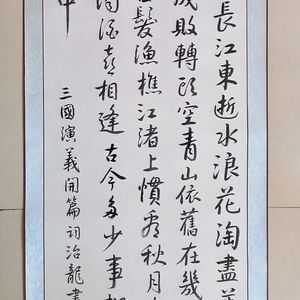 長江東逝水浪花淘盡英
成敗轉頭空青山依舊在幾
髮漁樵江渚上慣看秋月
酒喜相逢古今多少事都
三國演義開篇詞治龍書
中